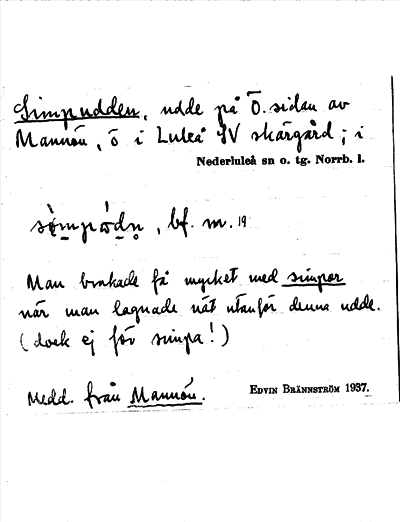 Simpudden, udde på Ö. sidan av
Mannön, ö i Luleå SV skärgård; i
Nederluleå sn o. tg. Norrb. l.
bf. m. 19
Man brukade få mycket med simpor
när man lagnade nät utanför denna udde.
(dock ej för simpa!)
Medd. från Mannön.
EDVIN BRÄNNSTRÖM 1937.